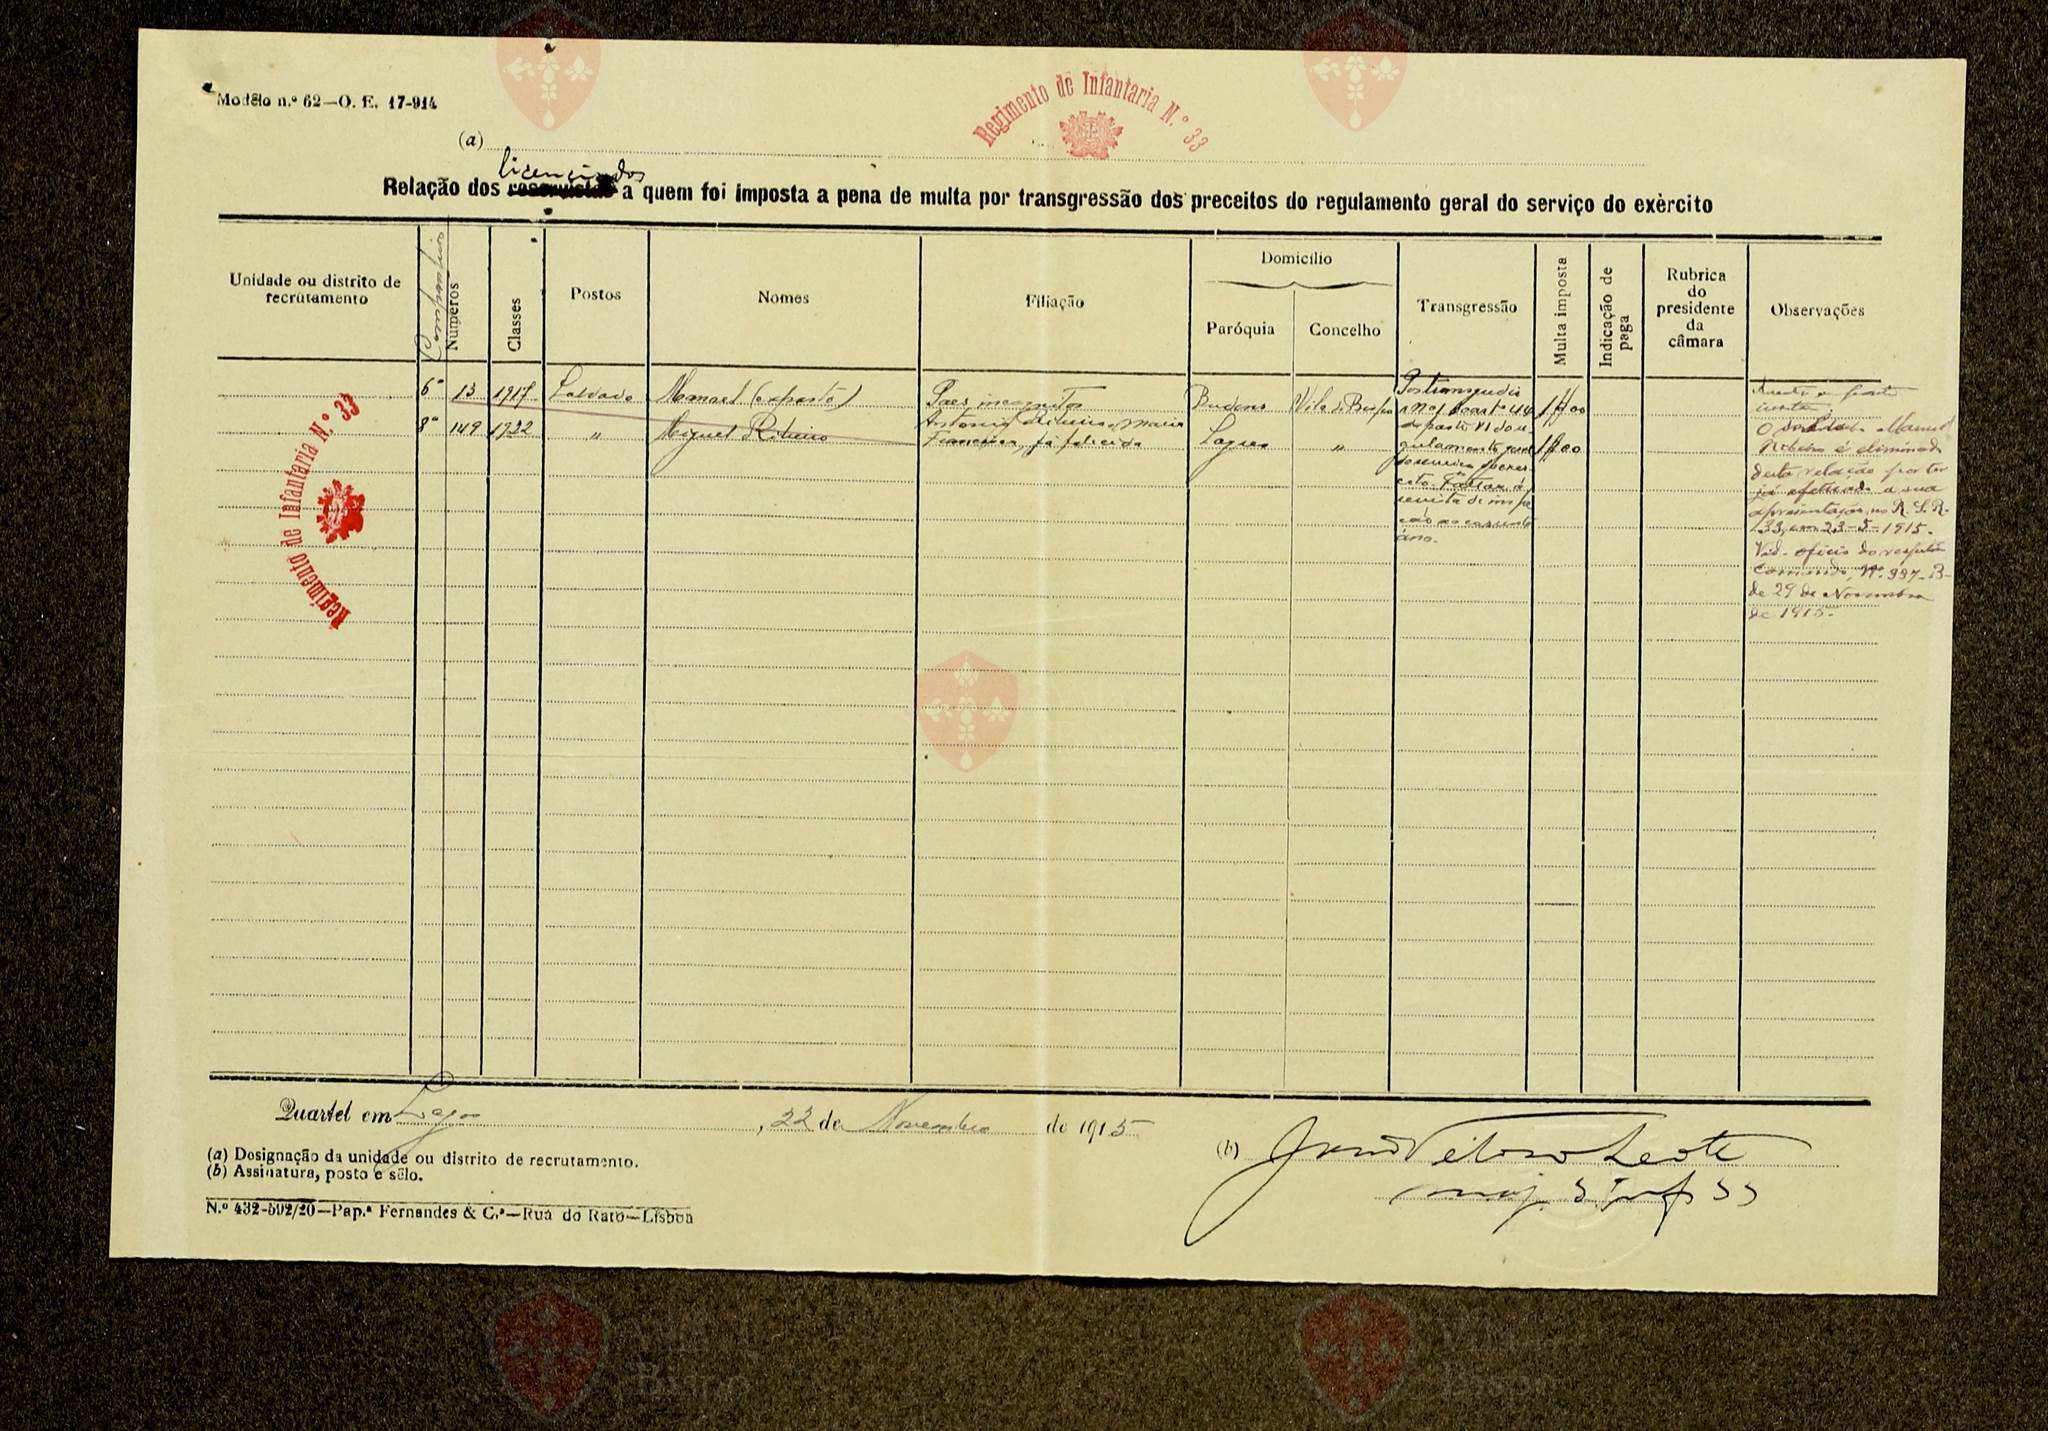 Modêlo n.º 62—O. E. 17-914
Regimento de Infantaria N.º 33
(a)
licenciados
Relação dos reservistas a quem foi imposta a pena de multa por transgressão dos preceitos do regulamento geral do serviço do exèrcito
Unidade ou distrito de recrutamento
Companhia
Números
Classes
Postos
Nomes
Filiação
Domicílio
Paróquia
Concelho
Transgressão
Multa imposta
Indicação de paga
Rubrica do presidente da câmara
Observações
6ª 13 1917 Soldado Manuel (exposto) Paes incognitos Budens Vila do Bispo 1$00
8ª 149 1922 " Miguel Ribeiro Antonio Ribeiro e Maria Francisca, já falecida Lagos " 1$00
Por transgredir
o nº 1 do artº 44
da parte VI do re-
gulamento geral
do serviço do exer-
cito. Faltar á
revista de inspe-
ção no corrente
ano.
O soldado Manuel
Ribeiro é eliminado
desta relação por ter
já efetuado a sua
apresentação no R. I. R.
33, em 23-5-1915.
Vid. oficio do respetivo
comando, Nº 997-B-
de 29 de Novembro
de 1915-
Regimento de Infantaria N.º 33
Quartel em Lagos, 22 de Novembro de 1915
(b)
(a) Designação da unidade ou distrito de recrutamento.
(b) Assinatura, posto e sêlo.
Veloso Leote
maj. d'Inf 33
N.º 432-592/20—Pap.ª Fernandes & C.ª—Rua do Rato—Lisboa